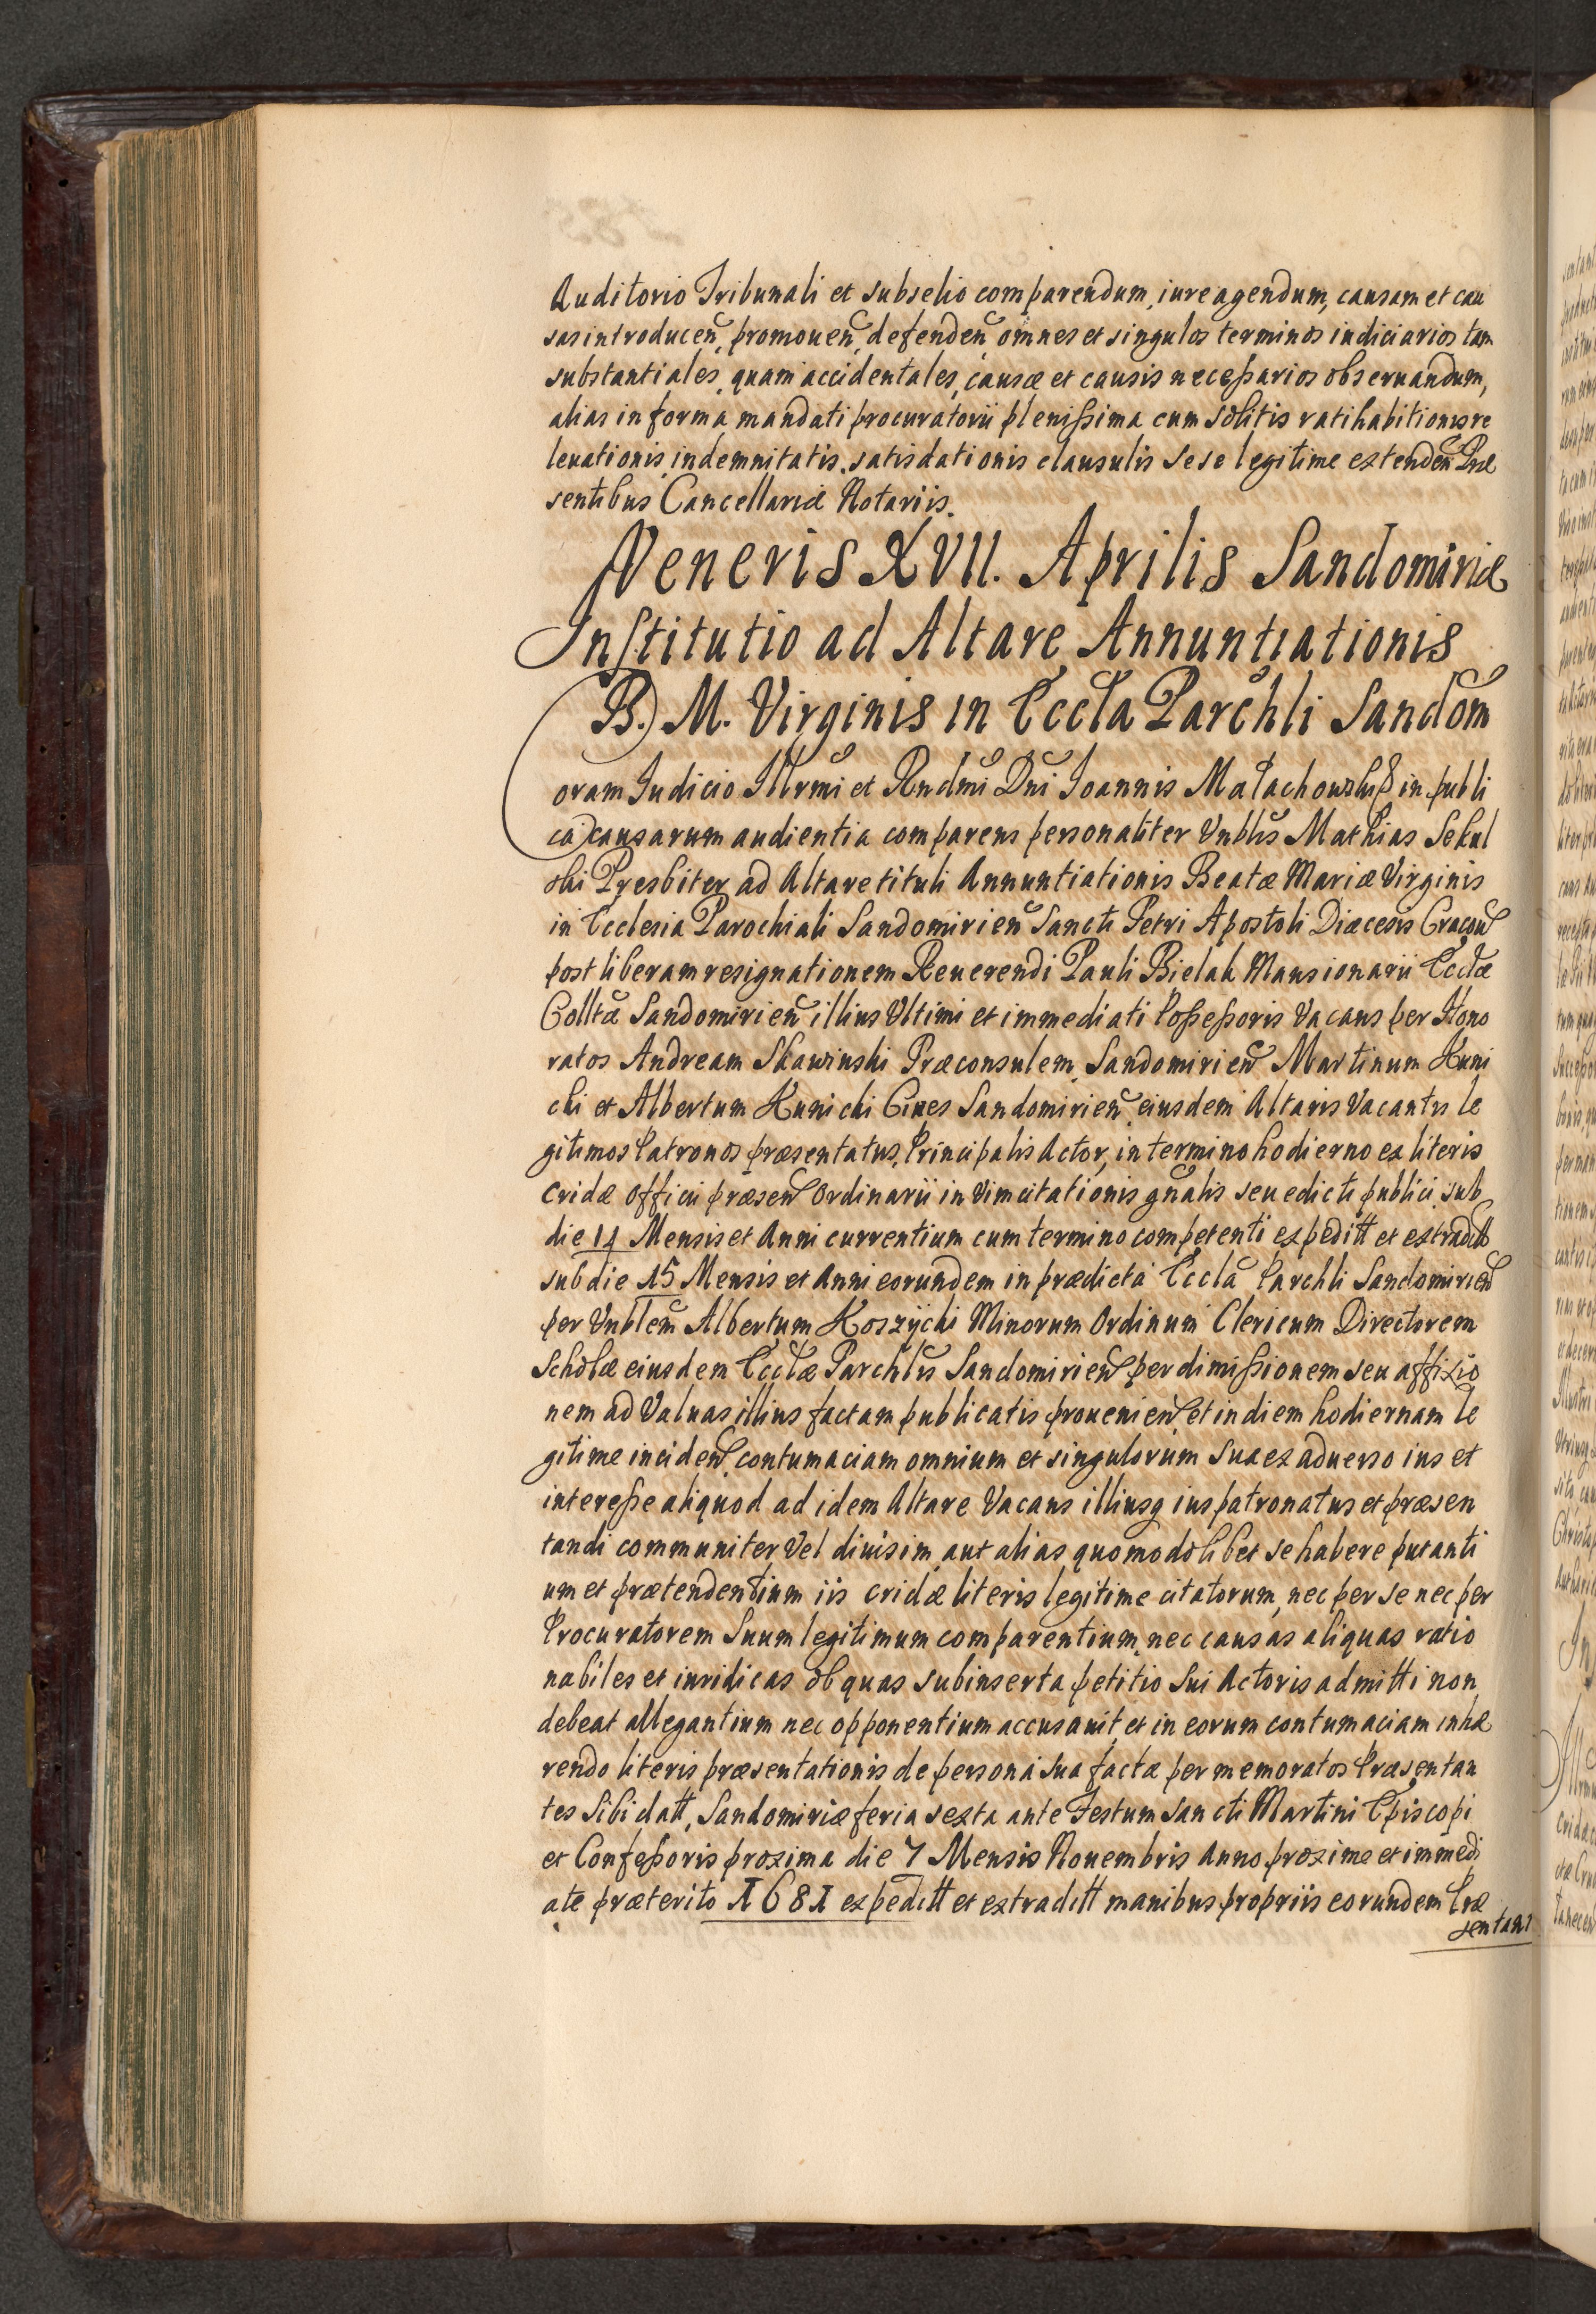 Auditorio Tribunali et subselio comparendum, iure agendum, causam et cau
sas introducen̄, promouen̄, defenden̄ omnes et singulos terminos iudiciarios tam
substantiales, quam accidentales, causæ et causis neceßarios obseruandum,
alias in forma mandati procuratorii plenißima cum solitis ratihabitionis re
leuationis, indemnitatis, satisdationis clausulis sese legitime extenden̄ Præ
sentibus Cancellariæ Notariis.
Veneris XVII. Aprilis Sandomiriæ
Institutio ad Altare Annuntiationis
B. M. Virginis in Eccla Parchli Sandom
Coram Iudicio Illrmi et Rndmi Dni Ioannis Małachowski in publi
ca causarum audientia comparens personaliter Vnblis Mathias Sekul
ski Presbiter ad Altare tituli Annuntiationis Beatæ Mariæ Virginis
in Ecclesia Parochiali Sandomirien̄ Sancti Petri Apostoli Diæcesis Cracoun̄
post liberam resignationem Reuerendi Pauli Bielak Mansionarii Ecclæ
Colltæ Sandomirien̄ illius Vltimi et immediati Poßeßoris Vacans per Hono
ratos Andream Skawinski Præconsulem Sandomirien̄ Martinum Kuni
cki et Albertum Kunicki Ciues Sandomirien̄ eiusdem Altaris Vacantis le
gitimos Patronos præsentatus, Principalis Actor, in termino hodierno ex literis
Cridæ Officii præsen̄ Ordinarii in Vim citationis gnalis seu edicti publici sub
die 14 Mensis et Anni currentium cum termino competenti expeditt et extraditt
sub die 15 Mensis et Anni eorundem in prædicta Eccla Parchli Sandomirien̄
per Vnblem Albertum Koszycki Minorum Ordinum Clericum Directorem
Scholæ eiusdem Ecclæ Parchlis Sandomirien̄ per dimißionem seu affixio
nem ad Valuas illius factam publicatis prouenien̄ et in diem hodiernam le
gitime inciden̄ contumaciam omnium et singulorum Sua ex aduerso ius et
intereße aliquod ad idem Altare Vacans illiusq ius patronatus et præsen
tandi communiter Vel diuisim aut alias quomodolibet se habere putanti
um et prætendentium iis cridæ literis legitime citatorum, nec per se nec per
Procuratorem Suum legitimum comparentium, nec causas aliquas ratio
nabiles et iuridicas ob quas subinserta petitio Sui Actoris admitti non
debeat allegantium nec opponentium accusauit, et in eorum contumaciam inhæ
rendo literis præsentationis de persona sua factæ per memoratos Præsentan
tes Sibi datt, Sandomiriæ feria sexta ante Festum Sancti Martini Episcopi
et Confeßoris proxima die 7 Mensis Nouembris Anno proxime et immedi
ate præterito 1681 expeditt et extraditt manibus propriis eorundem Præ
sentan